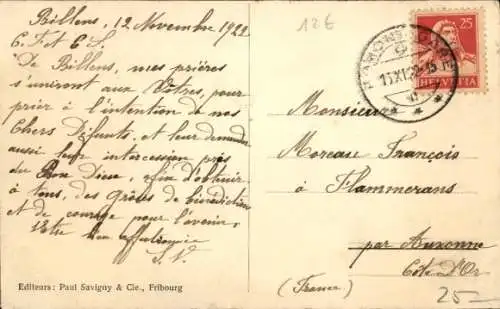 Billens, 12 Novembre 1922
C. F. et C. S.
De Billens, mes prières
s'uniront aux Vôtres, pour
prier à l'intention de nos
Chers Défunts, et leur demander
aussi leur intercession près
du Bon Dieu, afin d'obtenir
à tous, des grâces de bénédiction
et de courage pour l'avenir.
Votre bien affectionnée
J. V.
Editeurs: Paul Savigny & Cie., Fribourg
12€
ROMONT GARE
13.XI.22
25
HELVETIA
Monsieur
Moreau François
à Flammerans
par Auxonne
Côte D'Or
(France)
25-